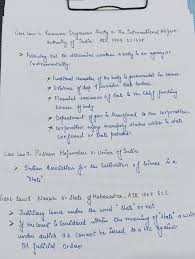 Case law 1: Ramana Dayaram Shetty v. The International Airport
Authority of India. AIR 1979 SC 1628
➤ Primary test to determine whether a body is an agency or
Instrumentality.
➤ Functional character of the body is governmental in issue
➤ Existence of deep & pervasive state control
➤ Financial resources of state is the chief funding
source of body.
➤ Department of govt is transferred to the corporation
➤ Corporation enjoys monopoly status which is state
conferred or state protected.
Case law 2: Pradeep Majumdar v. Union of India
➤ Indian Association for the cultivation of science is a
"State"
Case law 3: Naresh v. State of Maharashtra, AIR 1967 S.C 1
➤ Judiciary comes under the word "state" or not
➤ If considered within the meaning of state a writ
under article 32 cannot be issued to a HC against
its judicial order